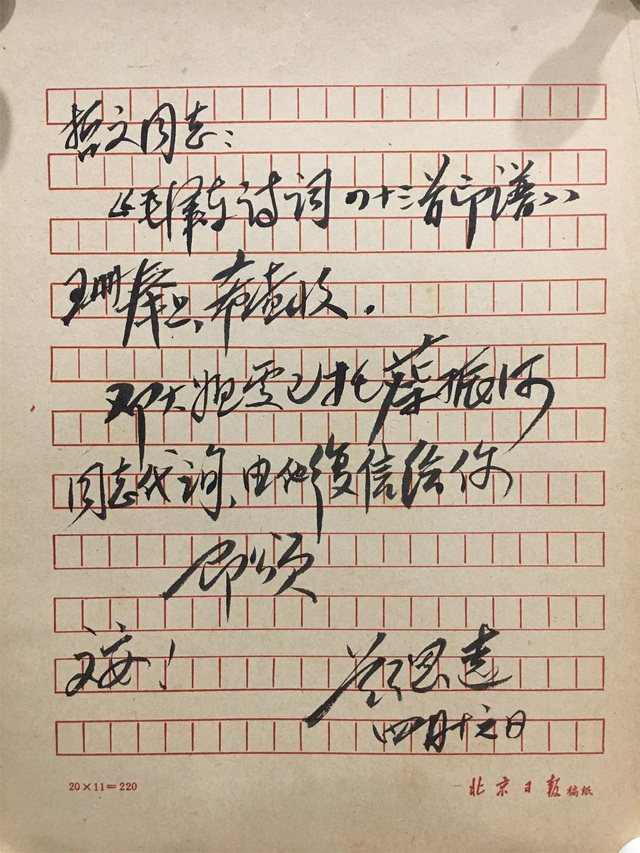 哲文同志：
《毛泽东诗词四十三首印谱》
王册奉上，希查收。
邓大姐处已托蔡振河
同志代询，由他復信给你
即颂
文安！
思远
四月十六日
20×11=220
北京日报稿纸